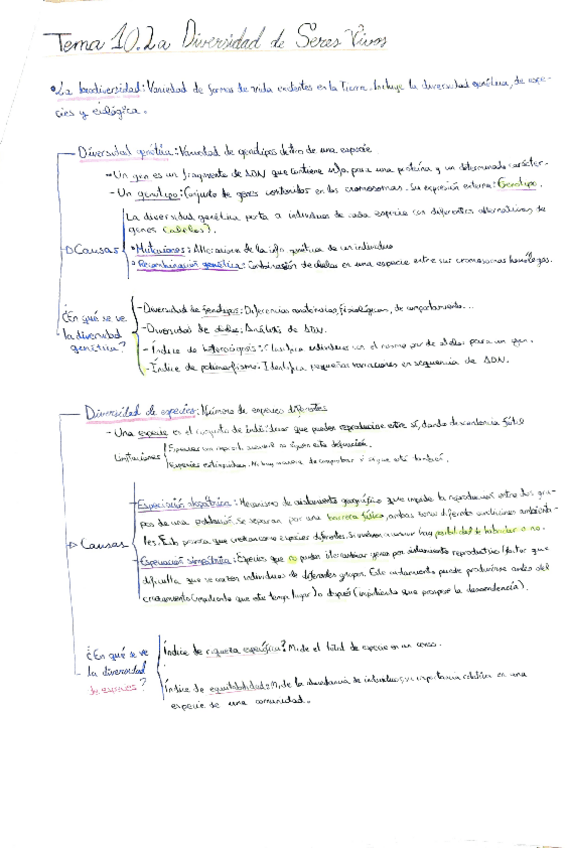 Tema 10. La Diversidad de Seres Vivos
La biodiversidad: Variedad de formas de vida existentes en la Tierra. Incluye la diversidad genética, de espe-
cies y ecológica.
Diversidad genética: Variedad de genotipos dentro de una especie
- Un gen es un fragmento de ADN que contiene info. para una proteína y un determinado carácter.
- Un genotipo: Conjunto de genes contenidos en los cromosomas. Su expresión externa: Genotipo.
La diversidad genética a individuos de cada especie con diferentes alternativas de
genes (alelos).
Causas
Mutaciones: Alteraciones de la info genética de un individuo
Recombinación genética: Combinación de alelos en una especie entre sus cromosomas homólogos.
¿En qué se ve
la diversidad
genética?
- Diversidad de fenotipos: Diferencias anatómicas, fisiológicas, de comportamiento...
- Diversidad de alelos: Análisis de ADN.
- Índice de heterocigosis: individuos con el mismo par de alelos para un gen.
- Índice de polimorfismo: Identifica pequeñas variaciones en secuencia de ADN.
Diversidad de especies: Número de especies diferentes
- Una especie es el conjunto de individuos que pueden reproducirse entre sí, dando descendencia fértil
Limitaciones
Especies con no siguen esta definición.
Especies extinguidas. No hay manera de comprobar si sigue esta
Causas
Especiación alopátrica: Mecanismo de aislamiento geográfico que impide la reproducción entre dos gru-
pos de una población. Se separan por una barrera física, ambas zonas diferentes condiciones ambienta-
les. Esto provoca que especies diferentes. Si vuelven a unirse hay posibilidad de hibridar o no.
Especiación simpátrica: Especies que no pueden intercambiar genes por aislamiento reproductivo (factor que
dificulta que se crucen individuos de diferentes grupos. Este aislamiento puede producirse antes del
cruzamiento (impidiendo que este tenga lugar) o después (impidiendo que prospere la descendencia).
¿En qué se ve
la diversidad
de especies?
Índice de riqueza específica: Mide el total de especies en un censo.
Índice de equitabilidad: Mide la abundancia de individuos, su importancia relativa en una
especie de una comunidad.